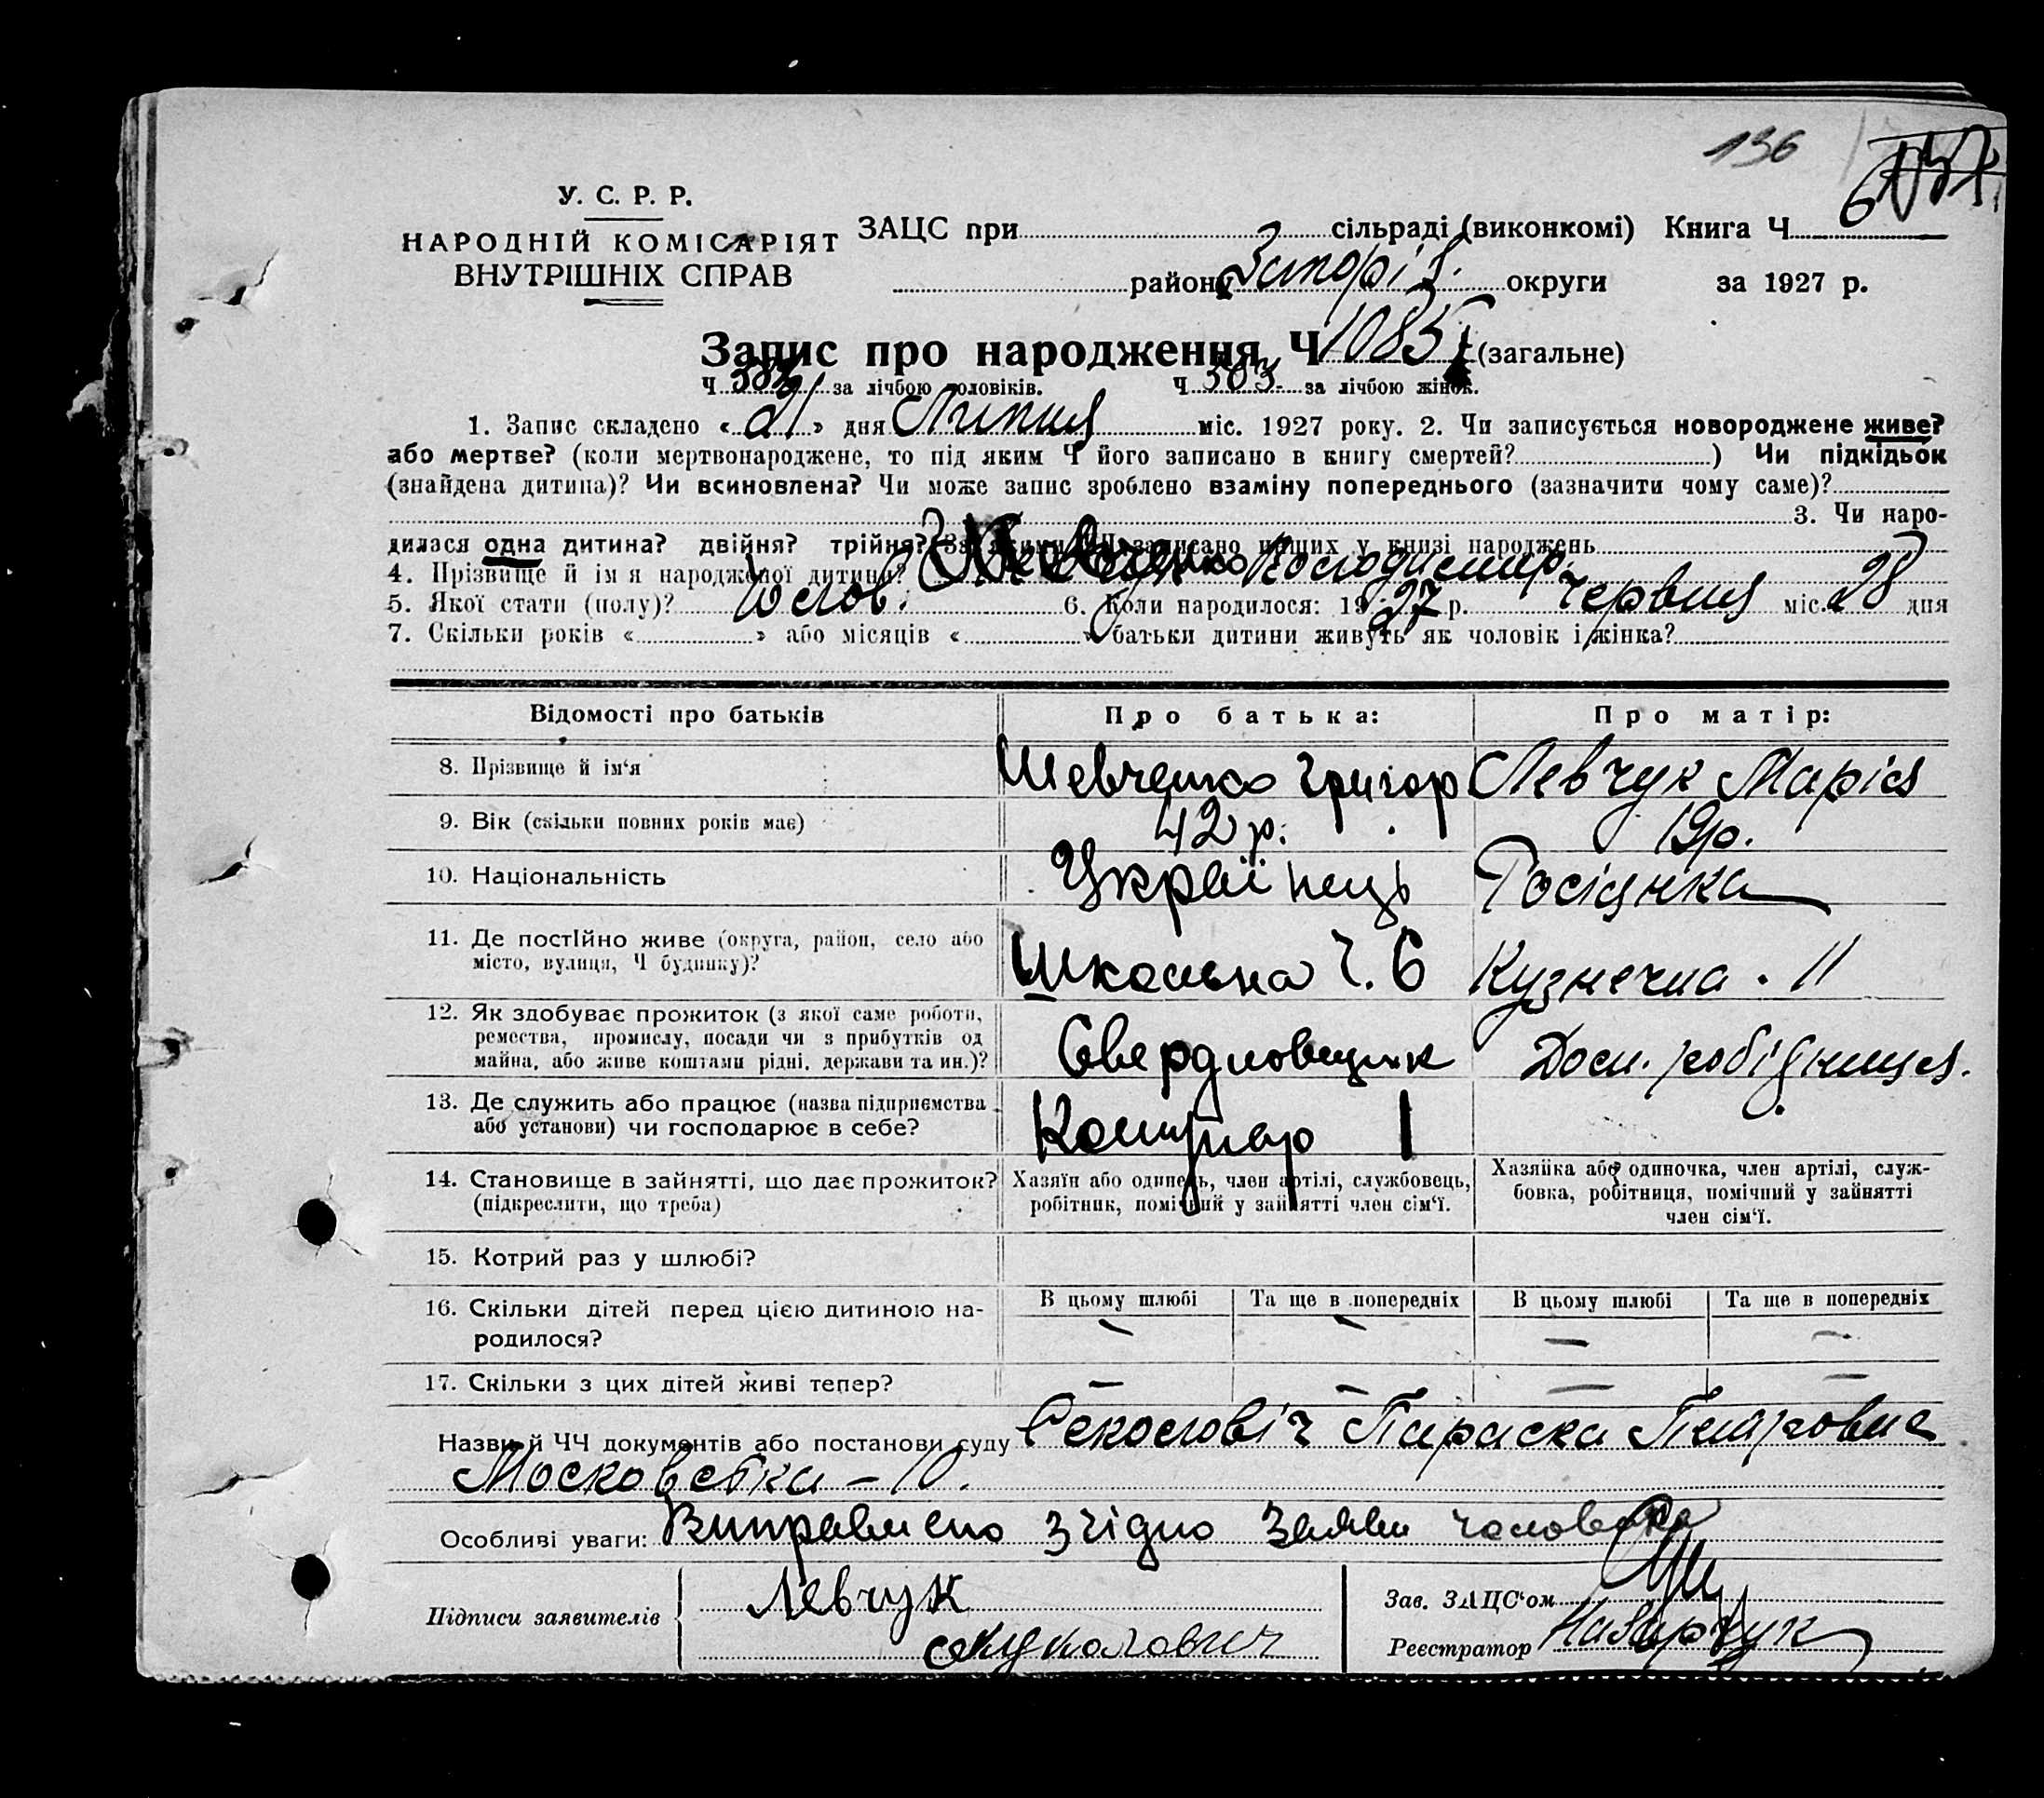 136
У. С. Р. Р.
НАРОДНІЙ КОМІСАРІЯТ
ВНУТРІШНІХ СПРАВ
ЗАЦС при сільраді (виконкомі) Книга Ч 6
району Запоріз. округи за 1927 р.
Запис про народження Ч 1085 (загальне)
Ч за лічбою чоловіків. Ч 503 за лічбою жінок.
1. Запис складено « 21 » дня Липня міс. 1927 року. 2. Чи записується новороджене живе?
або мертве? (коли мертвонароджене, то під яким Ч його записано в книгу смертей? ) Чи підкідьок
(знайдена дитина)? Чи всиновлена? Чи може запис зроблено взаміну попереднього (зазначити чому саме)?
3. Чи наро-
дилася одна дитина? двійня? трійня? За якими ЧЧ записано инших у книзі народжень
4. Прізвище й ім я народженої дитини? Володимир.
5. Якої стати (полу)? Чолов. 6. Коли народилося: 1927 р. Червня міс. 28 дня
7. Скільки років « » або місяців « » батьки дитини живуть як чоловік і жінка?
Відомості про батьків Про батька: Про матір:
8. Прізвище й ім‘я Шевченко Григор Левчук Марія
9. Вік (скільки повних років має) 42 р. 19р.
10. Національність Українець Росіянка
11. Де постійно живе (округа, район, село або
місто, вулиця, Ч будинку)? Школьна ч. 6 Кузнечна . 11
12. Як здобуває прожиток (з якої саме роботи,
ремества, промислу, посади чи з прибутків од
майна, або живе коштами рідні, держави та ин.)? Свердловщик Дом. робітниця.
13. Де служить або працює (назва підприємства
або установи) чи господарює в себе? Комунар
14. Становище в зайнятті, що дає прожиток?
(підкреслити, що треба)
Хазяїн або одинець, член артілі, службовець,
робітник, помічний у зайнятті член сім‘ї.
Хазяйка або одиночка, член артілі, служ-
бовка, робітниця, помічний у зайнятті
член сім‘ї.
15. Котрий раз у шлюбі?
16. Скільки дітей перед цією дитиною на-
родилося?
В цьому шлюбі Та ще в попередніх В цьому шлюбі Та ще в попередніх
— — — —
17. Скільки з цих дітей живі тепер? — — — —
Назви й ЧЧ документів або постанови суду Параска Петровна
Московська – 10.
Особливі уваги: Виправлено згідно заяви чоловіка
Підписи заявителів Левчук
Зав. ЗАЦС‘ом
Реєстратор